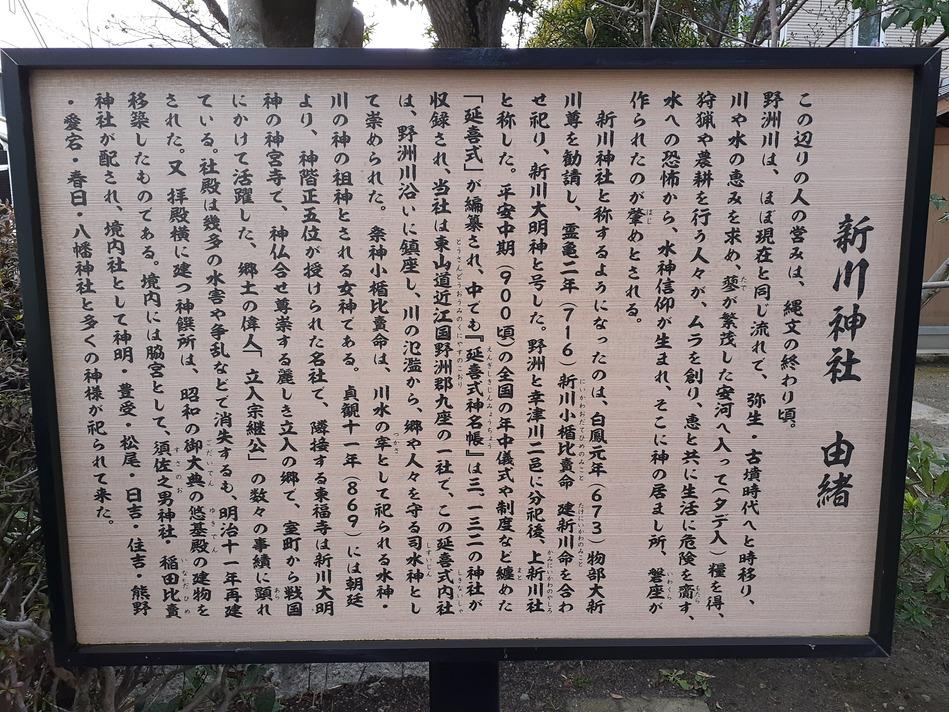 新川神社　由緒
この辺りの人の営みは、縄文の終わり頃。
野洲川は、ほぼ現在と同じ流れで、弥生・古墳時代へと時移り、
川や水の恵みを求め、蓼が繁茂した安河へ入って(タデ入)糧を得、
狩猟や農耕を行う人々が、ムラを創り、恵と共に生活に危険を齎す、
水への恐怖から、水神信仰が生まれ、そこに神の居まし所、磐座が
作られたのが肇めとされる。
新川神社と称するようになったのは、白鳳元年(673)物部大新
川尊を勧請し、霊亀二年(716)新川小楯比賣命　建新川命を合わ
せ祀り、新川大明神と号した。野洲と幸津川二邑に分祀後、上新川社
と称した。平安中期(900頃)の全国の年中儀式や制度など纏めた
「延喜式」が編纂され、中でも『延喜式神名帳』は三、一三二の神社が
収録され、当社は東山道近江国野洲郡九座の一社で、この延喜式内社
は、野洲川沿いに鎮座し、川の氾濫から、郷や人々を守る司水神とし
て崇められた。祭神小楯比賣命は、川水の宰として祀られる水神・
川の神の祖神とされる女神である。貞観十一年(869)には朝廷
より、神階正五位が授けられた名社で、隣接する東福寺は新川大明
神の神宮寺で、神仏合せ尊崇する麗しき立入の郷で、室町から戦国
にかけて活躍した、郷土の偉人」立入宗継公」の数々の事績に顕れ
ている。社殿は幾多の水害や争乱などで消失するも、明治十一年再建
された。又　拝殿横に建つ神饌所は、昭和の御大典の悠基殿の建物を
移築したものである。境内には脇宮として、須佐之男神社・稲田比賣
神社が配され、境内社として神明・豊受・松尾・日吉・住吉・熊野
・愛宕・春日・八幡神社と多くの神様が祀られて来た。